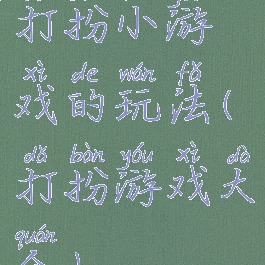 打扮小游
xì de wán fǎ
戏的玩法(
dǎ bàn yóu xì dà
打扮游戏大
quán
全)